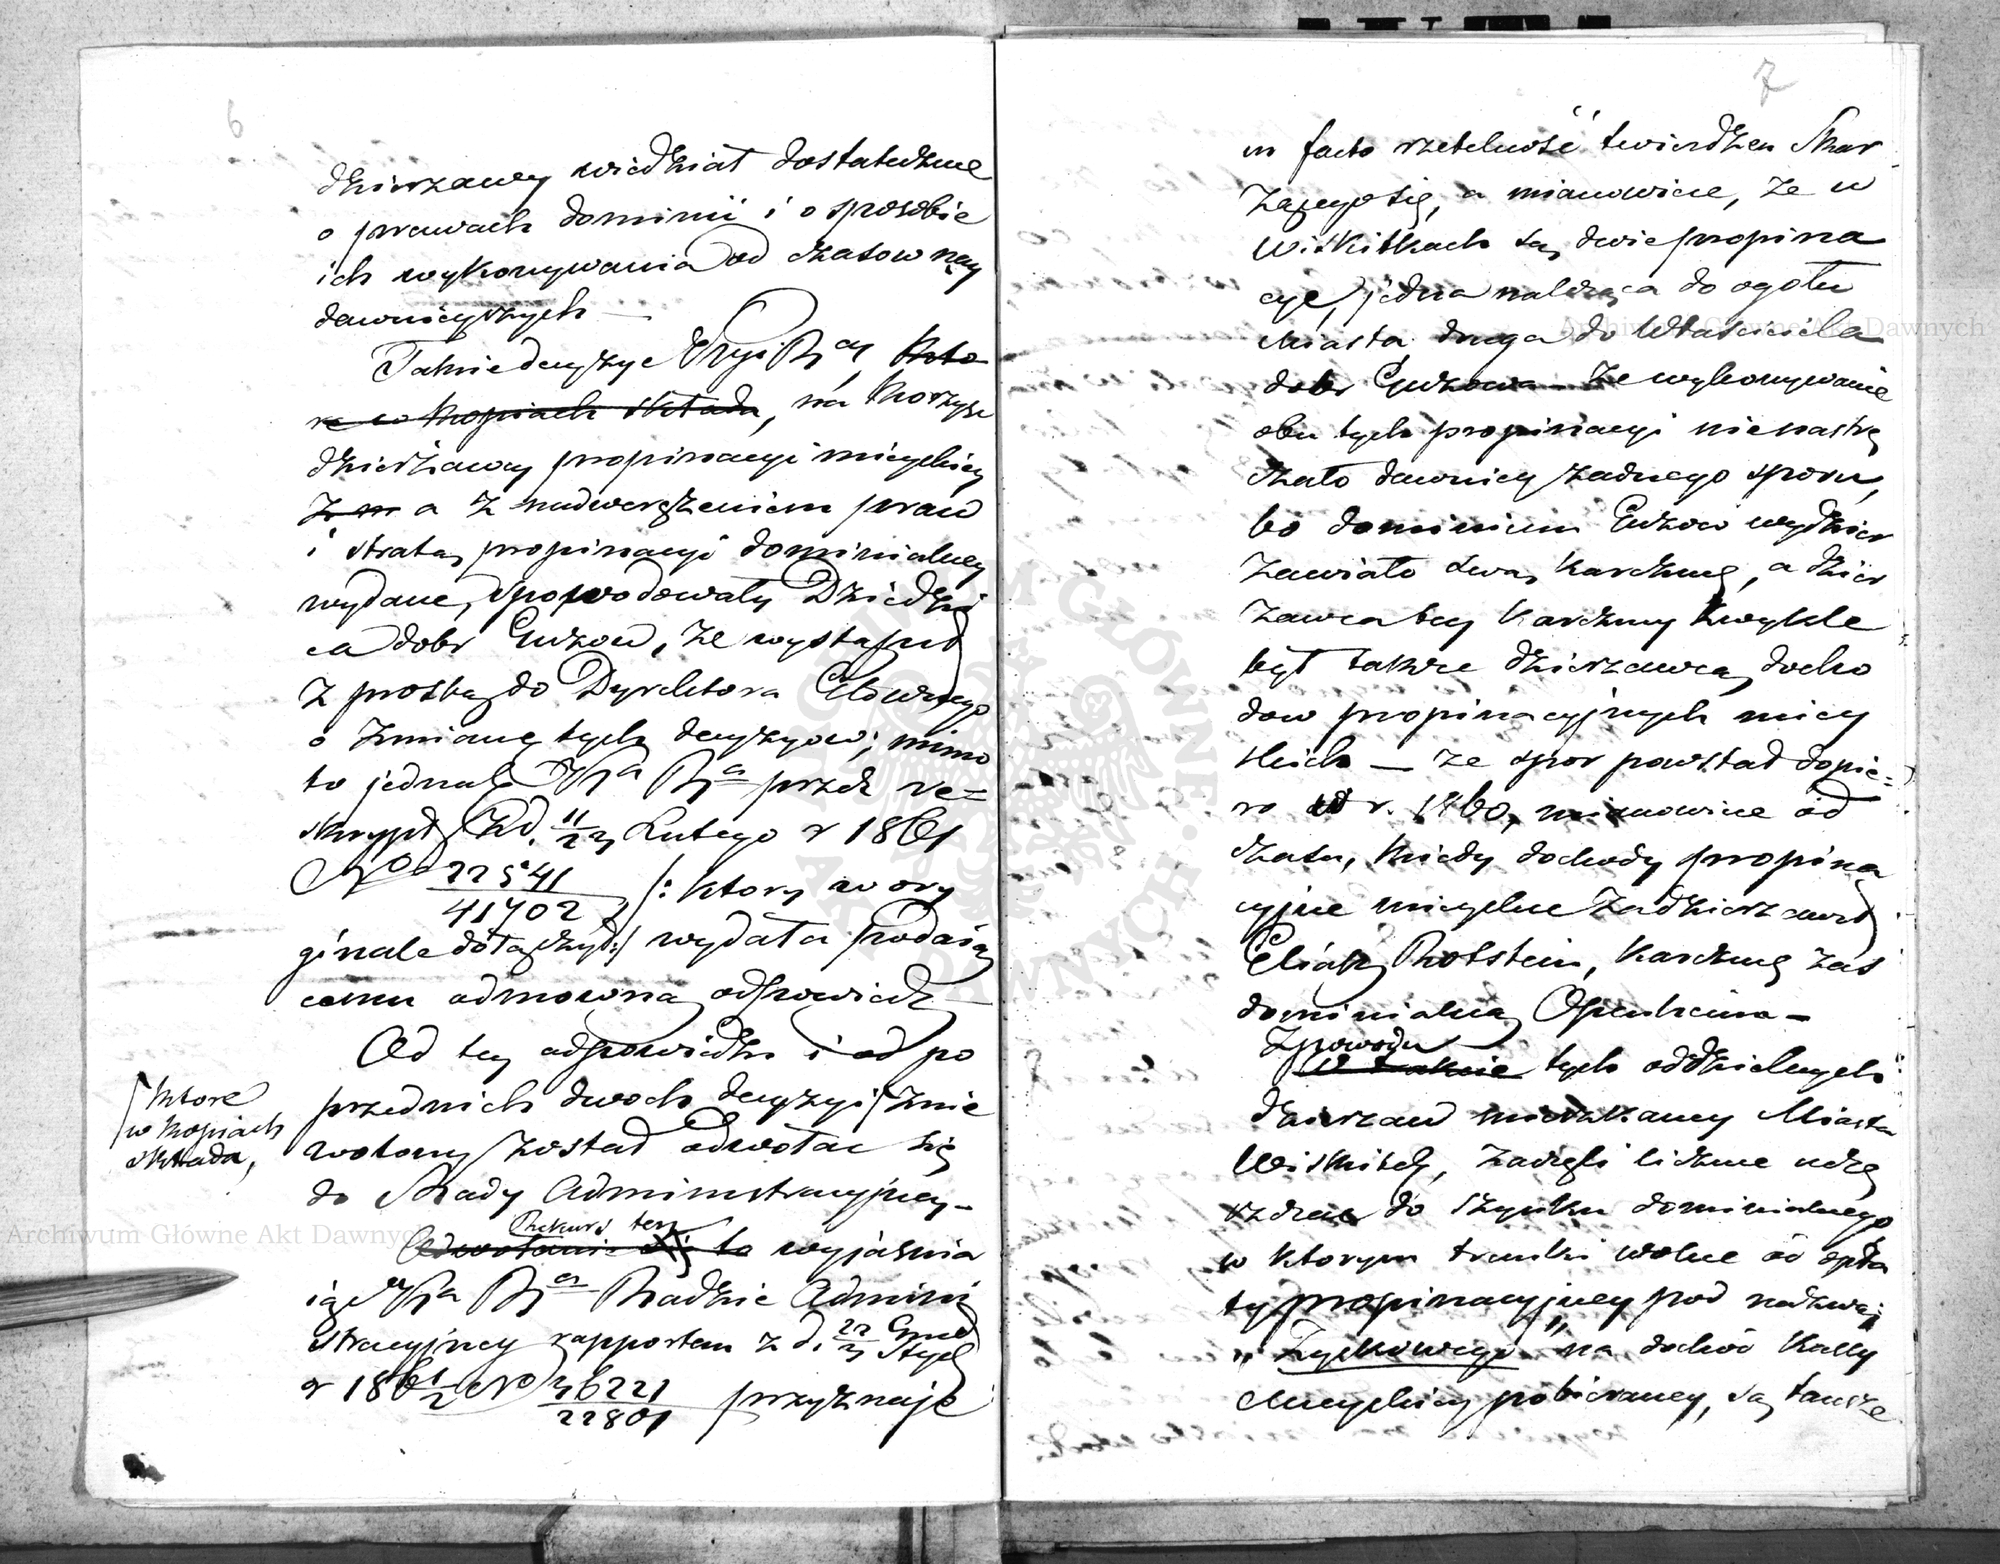 6
dzierzawcy wiedział dostatecznie
o prawach dominii i o sposobie
ich wykonywania od czasow nay
dawnieyszych —
Takie decyzye
w kopiach składa, na korzyść
dzierżawcy propinacyi mieyskiey
a z nadwerężeniem praw
i stratą propinacyi dominialney
wydane, spowodowały Dziedzi
ca dobr Guzow, że wystąpił
z prosbą do Dyrektora Głownego
o zmianę tych decyzyow; mimo
to jednak przez re=
skrypt z d. 11/23 Lutego r 1861
No 22541/41702 /: ktory w ory
ginale dołączył :/ wydała podaią
cemu odmowną odpowiedz —
Od tey odpowiedzi i od po
przednich dwoch decyzyi znie
wolony został odwołac się
do Rady Administracyjney —
/ktore
w kopiach
składa,
Rekurs ten
Odwołanie się to wyjaśnia
Radzie Admini
stracyjney rapportem z d.
r 186 1/2 No 36221/22801 przyznaje
7
in facto rzetelność twierdzen Skar
żącego się, a mianowicie, że w
Wiskitkach są dwie propina
cye, jedna należąca do ogołu
Miasta druga do Właściciela
dobr Guzowa — że wykonywanie
obu tych propinacyi nienastrę
czało dawniey żadnego sporu,
bo dominium Guzow wydzier
żawiało swą karczmę, a dzier
żawca tey karczmy zwykle
był także dzierzawcą docho
dow propinacyjnych miey
skich — że spor powstał dopie=
ro w r. 1860, mianowicie od
czasu, kiedy dochody propina
cyjne mieyskie zadzierzawił
Eliasz Rotstein, karczmę zaś
dominialną Openheim —
Zpowodu
tych oddzielnych
dzierzaw mieszkancy Miasta
Wiskitek, zaczęli licznie uczę
szczac do szynku dominialnego
w ktorym trunki wolne od opła
ty propinacyjney pod nazwą
„Zyskowego" na dochod Kassy
Mieyskiey pobieraney, są tansze
Archiwum Główne Akt Dawnych
Archiwum Główne Akt Dawnych
ARCHIWUM GŁÓWNE AKT DAWNYCH